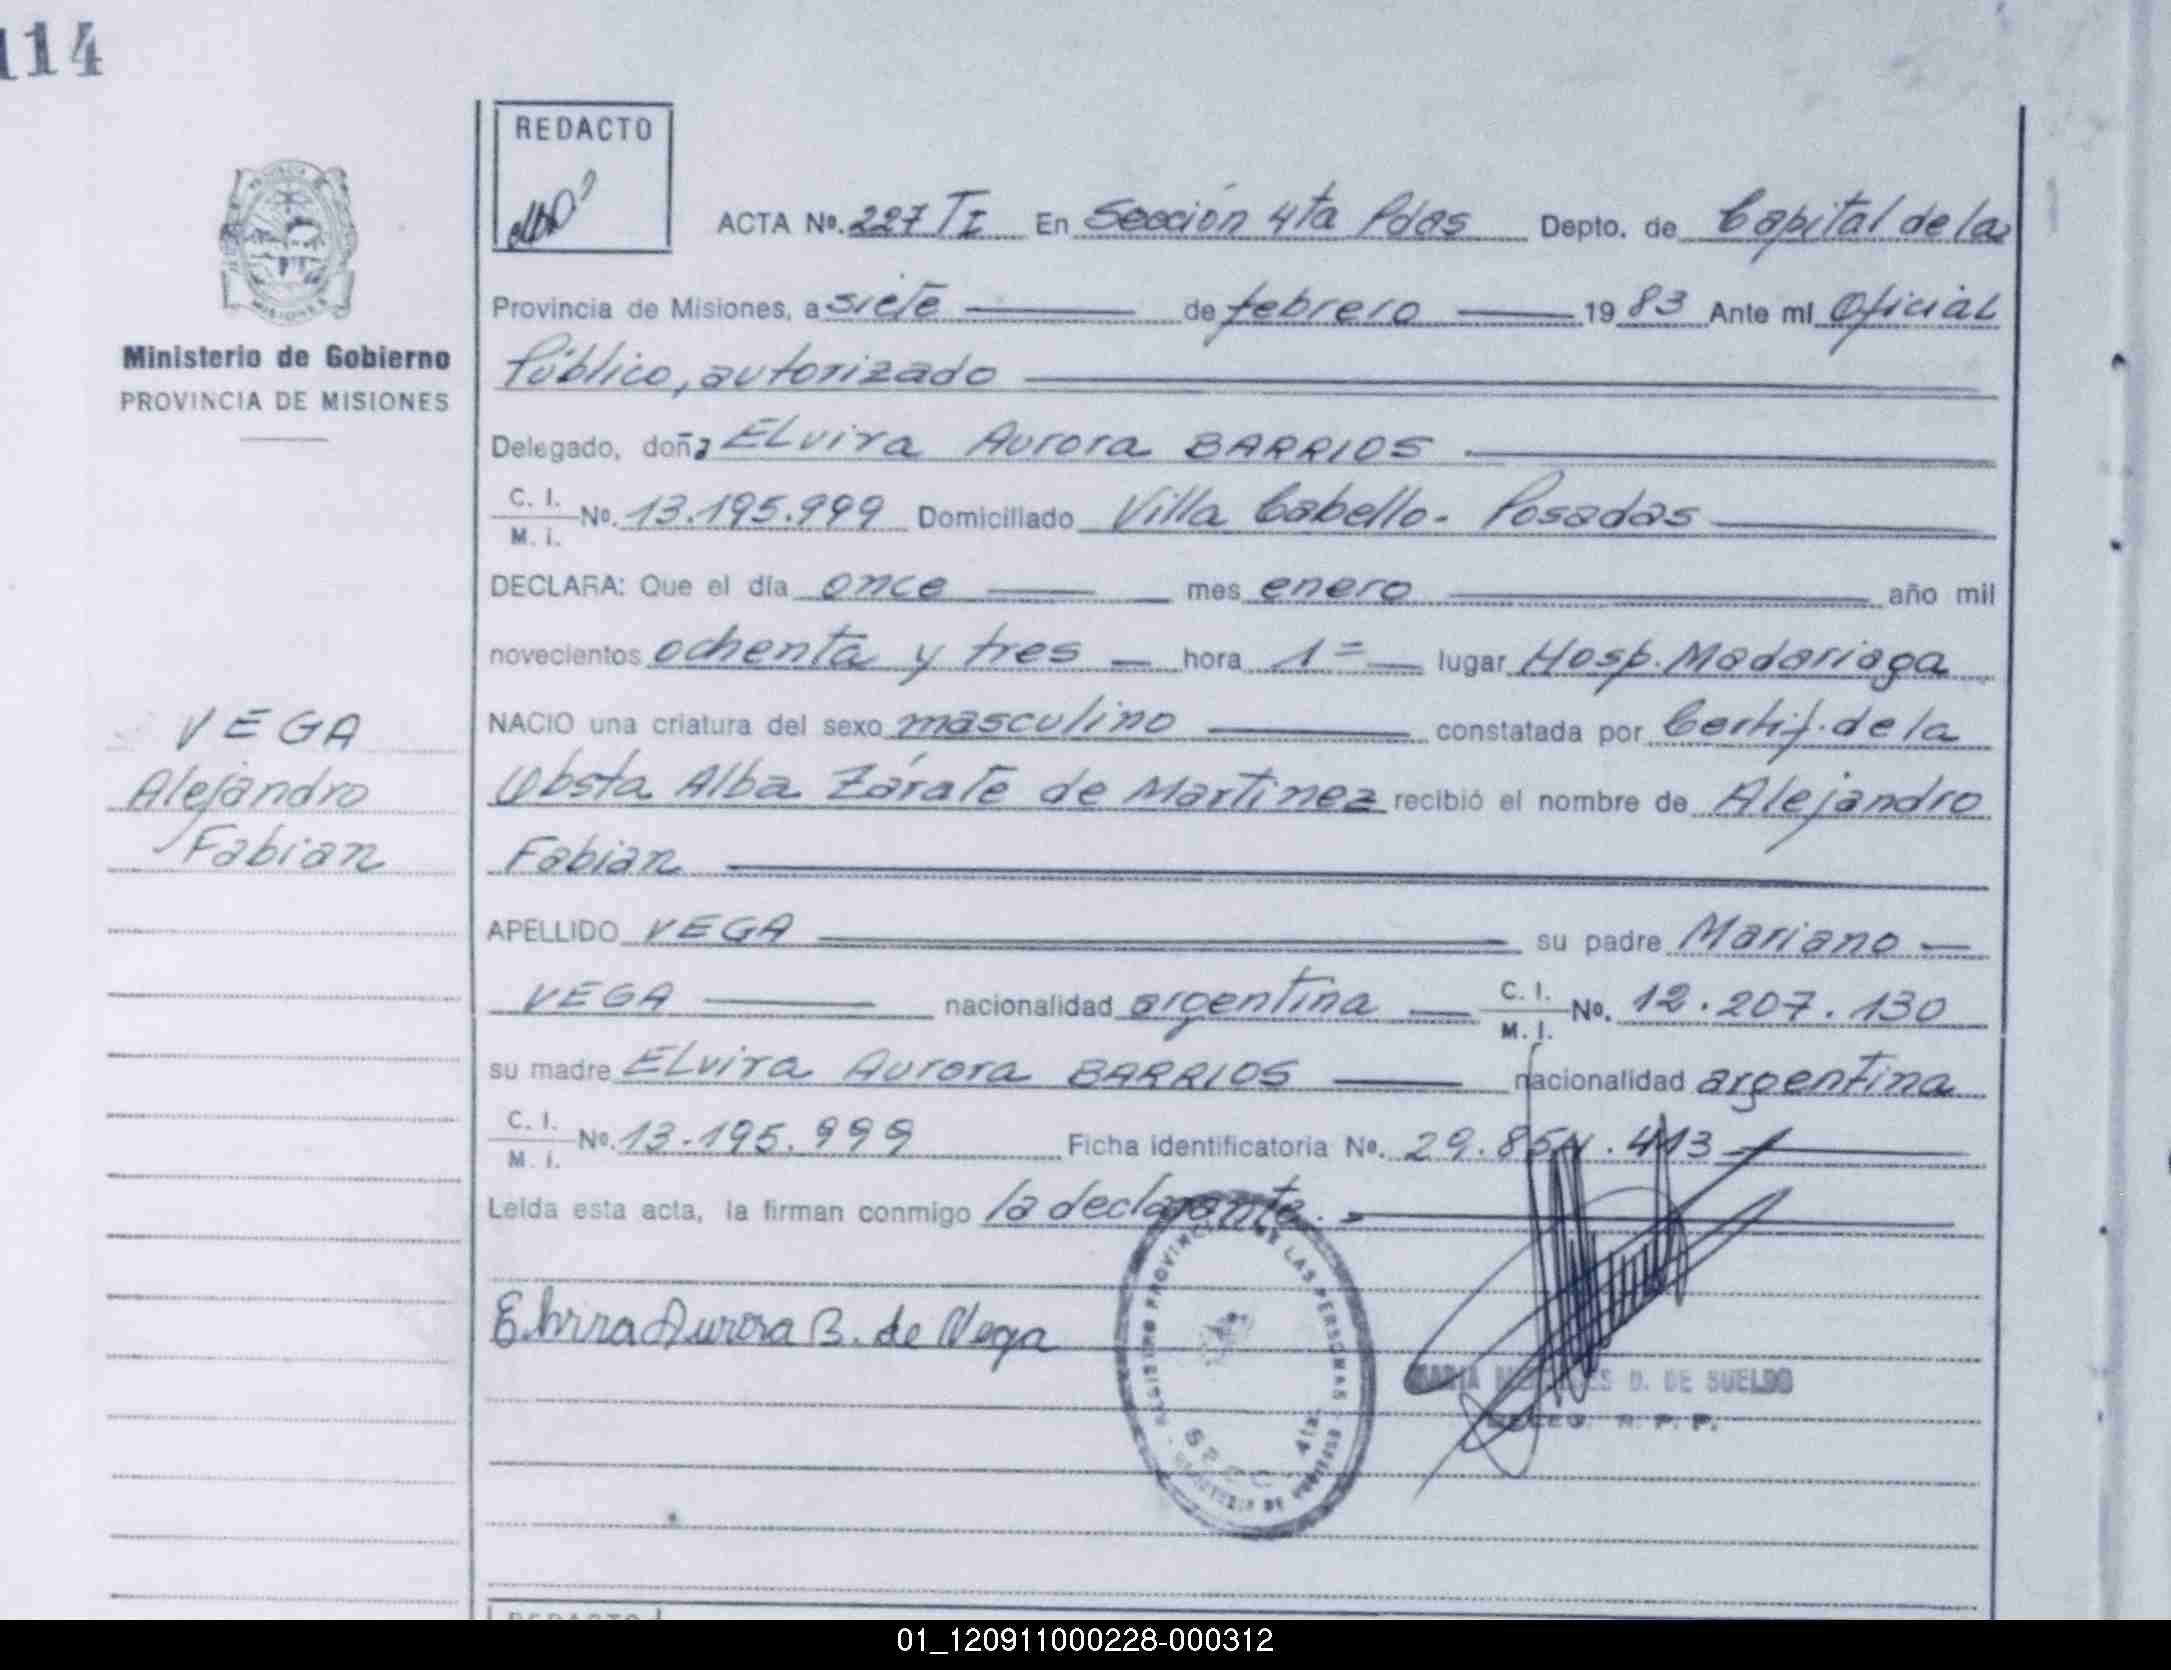 114
REDACTO
ACTA Nº. 227 TI En Sección 4ta Pdas Depto. de Capital de la
Provincia de Misiones, a siete de febrero 1983 Ante mi Oficial
Público, autorizado
Ministerio de Gobierno
PROVINCIA DE MISIONES
Delegado, doña ELvira Aurora BARRIOS
C. I.
M. I. Nº. 13.195.999 Domiciliado Villa Cabello - Posadas
DECLARA: Que el día once mes enero año mil
novecientos ochenta y tres hora 1= lugar Hosp. Madariaga
NACIO una criatura del sexo masculino constatada por Certif. de la
Obsta Alba Zárate de Martinez recibió el nombre de Alejandro
Fabian
VEGA
Alejandro
Fabian
APELLIDO VEGA su padre Mariano
VEGA nacionalidad argentina C. I.
M. I. Nº. 12.207.130
su madre ELvira Aurora BARRIOS nacionalidad argentina
C. I.
M. I. Nº. 13.195.999 Ficha identificatoria Nº. 29.854.413
Leida esta acta, la firman conmigo la declarante.
Elvira Aurora B. de Vega
REGISTRO PROVINCIAL DE LAS PERSONAS
SECC. 4ta.
MARIA MERCEDES D. DE SUELDO
DELEG. R. P. P.
REDACTO
01_120911000228-000312